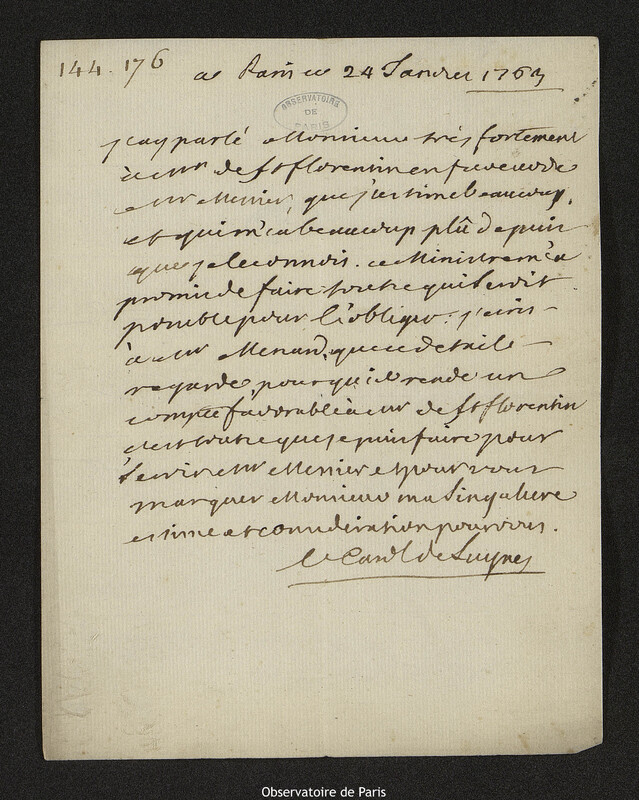 144. 176
a Paris ce 24 Janvier 1763
OBSERVATOIRE
DE
PARIS
j'ay parlé Monsieur très fortement
à Mr de St florentin en faveur de
Mr Messier, que j'estime beaucoup,
et qui m'a beaucoup plû depuis
que je le connois. ce Ministre m'a
promis de faire tout ce qui seroit
possible pour l'obliger. j'écris
à Mr Menard, que ce detail
regarde, pour qu'il rende un
compte favorable à Mr de St florentin
c'est tout ce que je puis faire pour
servir Mr Messier et pour vous
marquer Monsieur ma singuliere
estime et consideration pour vous.
le Card. de Luynes
Observatoire de Paris